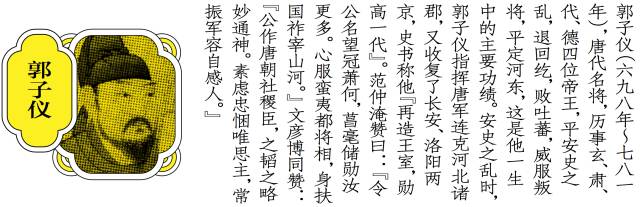 郭子仪（六九八年～七八一
年），唐代名将，历事玄、肃、
代、德四位帝王，平安史之
乱，退回纥，败吐蕃，威服叛
将，平定河东，这是他一生
中的主要功绩。安史之乱时，
郭子仪指挥唐军连克河北诸
郡，又收复了长安、洛阳两
京，史书称他『再造王室，勋
高一代』。范仲淹赞曰：『令
公名望冠萧何，菖毫储勋汝
更多。心服蛮夷都将相，身扶
国祚宰山河。』文彦博同赞：
『公作唐朝社稷臣，之韬之略
妙通神。素虑忠悃唯思主，常
振军容自感人。』
郭子仪